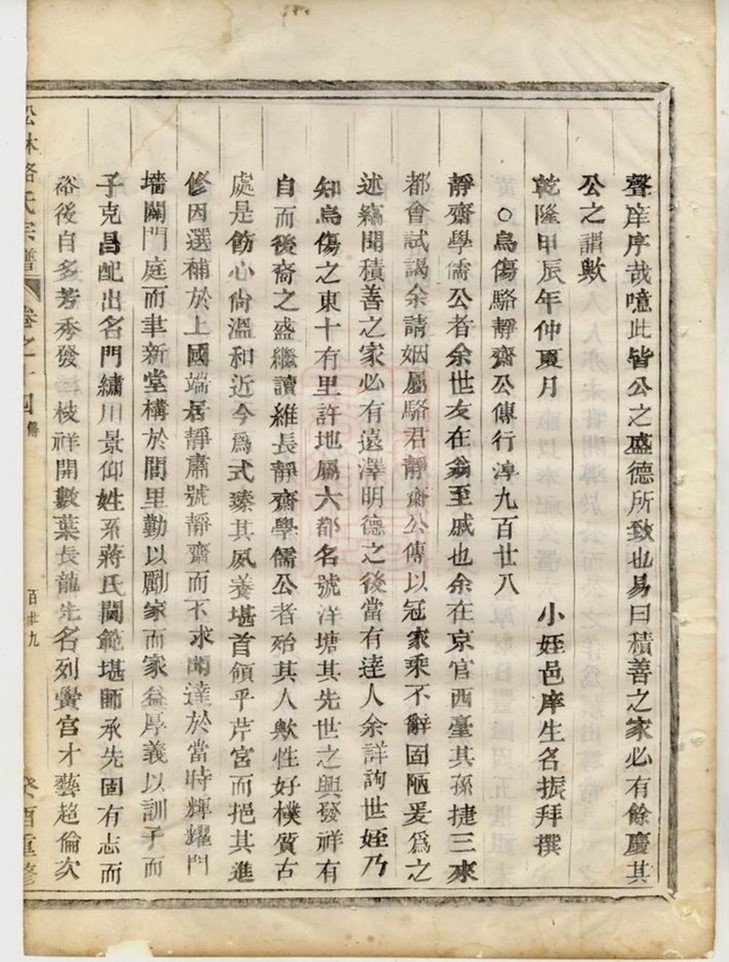 聲庠序哉噫此皆公之盛德所致也易曰積善之家必有餘慶其
公之謂歟
乾隆甲辰年仲夏月 小姪邑庠生名振拜撰
○烏傷駱靜齋公傳行淳九百廿八
靜齋學儒公者余世友在翁至戚也余在京官西臺其孫捷三來
都會試謁余請姻屬駱君靜齋公傳以冠家乘不辭固陋爰為之
述竊聞積善之家必有遠澤明德之後當有達人余詳詢世姪乃
知烏傷之東十有里許地屬六都名號洋塘其先世之興發祥有
自而後裔之盛繼讀維長靜齋學儒公者殆其人歟性好樸質古
處是飭心尚溫和近今為式臻其夙養堪首領乎芹宮而挹其進
修因選補於上國端居靜肅號靜齋而不求聞達於當時輝耀門
墻闢門庭而聿新堂構於閭里勤以勵家而家益厚義以訓子而
子克昌配出名門繡川景仰姓系蔣氏閫範堪師承先固有志而
裕後自多芳秀發枝祥開數葉長龍先名列黌宮才藝超倫次
松林駱氏宗譜 卷之十四 傳 百廿九 癸酉重修